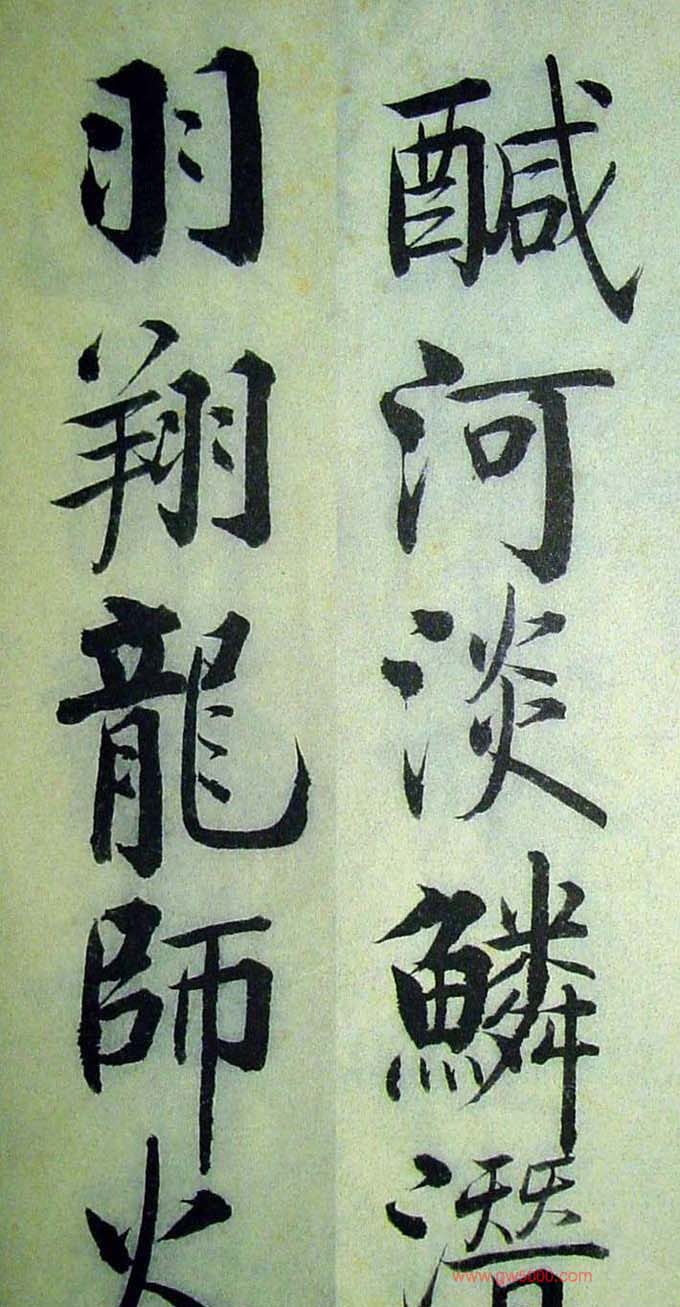 醎河淡鱗潛
羽翔龍師火
www.gw5000.com